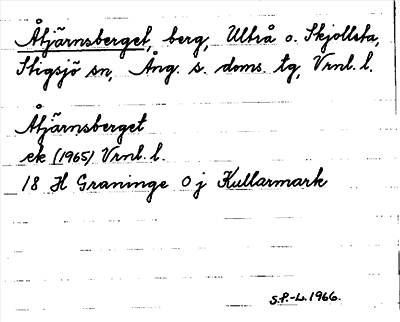 Åtjärnsberget, berg, Ultrå o. Skjollsta,
Stigsjö sn, Ång. s. doms. tg, Vrnl. l.
Åtjärnsberget
ek (1965) Vrnl. l.
18 H Graninge 0 j Kullarmark
S.P.-L. 1966.